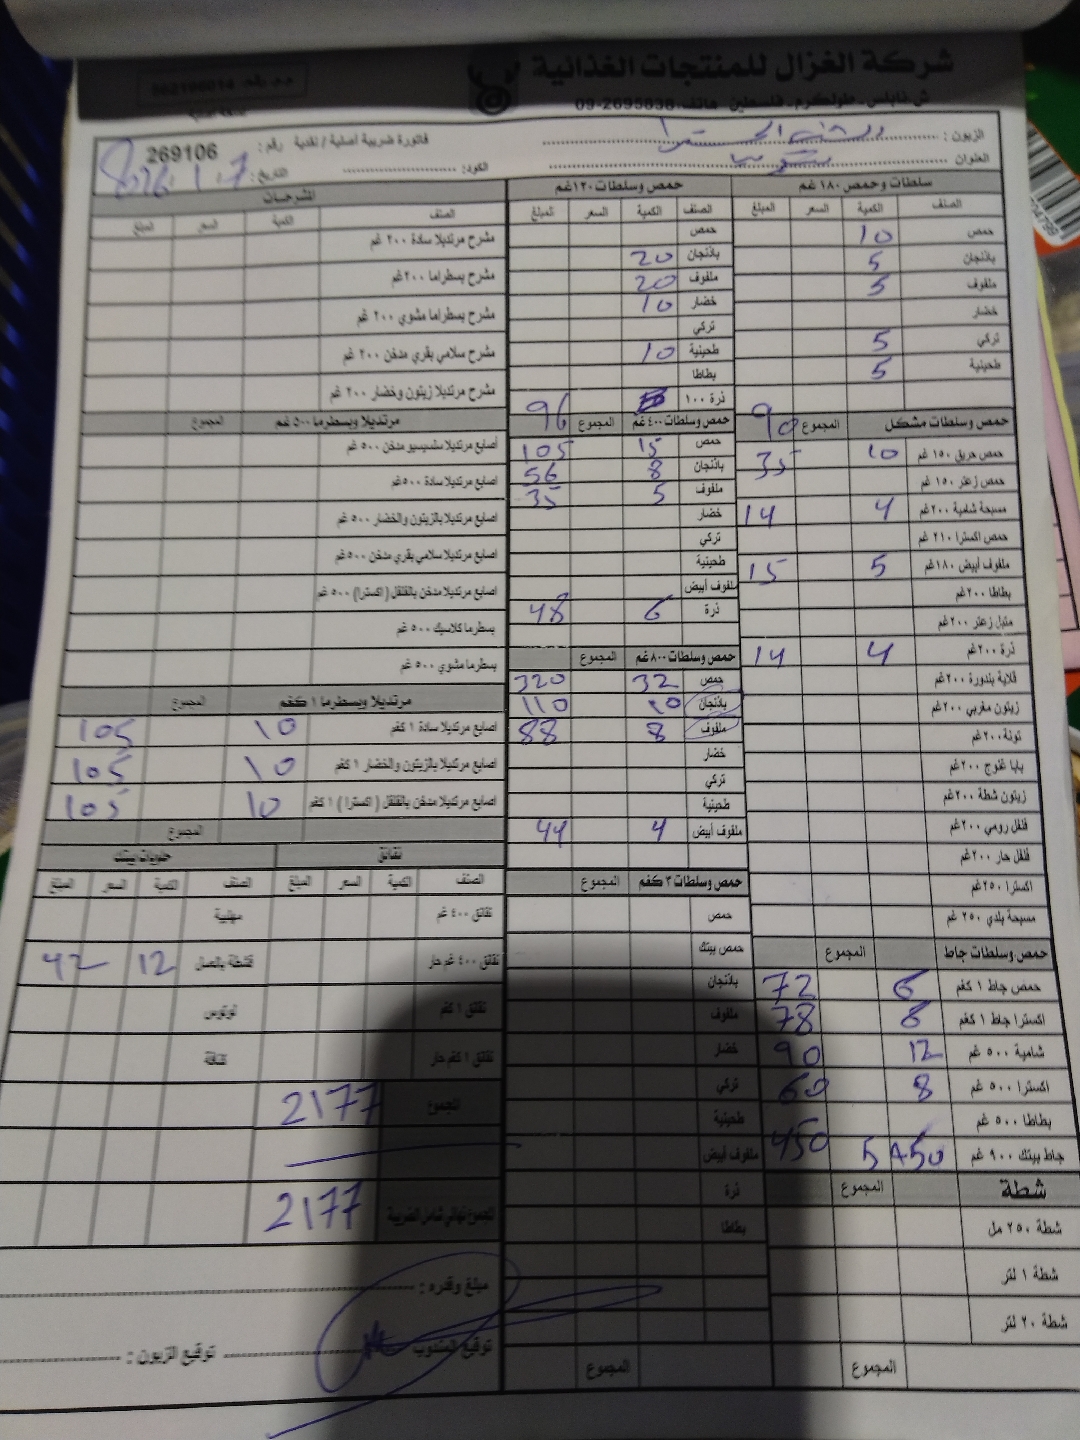 شركة الغزال للمنتجات الغذائية
ش.نابلس - طولكرم - فلسطين هاتف: 09-2695838
الزبون :
العنوان
فاتورة ضريبة أصلية / نقدية رقم : 269106
الكود:
التاريخ:
سلطات وحمص ١٨٠ غم
الصنف الكمية السعر المبلغ
حمص 10
باذنجان 5
ملفوف 5
خضار
تركي 5
طحينية 5
حمص وسلطات مشكل المجموع 90
حمص حريق ١٥٠ غم 10 35
حمص زعتر ١٥٠ غم
مسبحة شامية ٢٠٠ غم 4 14
حمص اكسترا ٢١٠ غم
ملفوف أبيض ١٨٠ غم 5 15
بطاطا ٢٠٠ غم
متبل زعتر ٢٠٠ غم
ذرة ٢٠٠ غم 4 14
قلاية بندورة ٢٠٠ غم
زيتون مغربي ٢٠٠ غم
تونة ٢٠٠ غم
بابا غنوج ٢٠٠ غم
زيتون شطة ٢٠٠ غم
فلفل رومي ٢٠٠ غم
فلفل حار ٢٠٠ غم
اكسترا ٢٥٠ غم
مسبحة بلدي ٢٥٠ غم
حمص وسلطات جاط المجموع
حمص جاط ١ كغم 6 72
اكسترا جاط ١ كغم 8 78
شامية ٥٠٠ غم 12 90
اكسترا ٥٠٠ غم 8 60
بطاطا ٥٠٠ غم
جاط بيتك ٩٠٠ غم 450
شطة المجموع
شطة ٢٥٠ مل
شطة ١ لتر
شطة ٢٠ لتر
المجموع
حمص وسلطات ١٢٠ غم
الصنف الكمية السعر المبلغ
حمص
باذنجان 20
ملفوف 20
خضار 10
تركي
طحينية 10
بطاطا
ذرة ١٠٠ 96
حمص وسلطات ٤٠٠ غم المجموع
حمص 15 105
باذنجان 8 56
ملفوف 5 35
خضار
تركي
طحينية
ملفوف أبيض
ذرة 6 48
حمص وسلطات ٨٠٠ غم المجموع
حمص 32 320
باذنجان 10 110
ملفوف 8 88
خضار
تركي
طحينية
ملفوف أبيض 4 44
حمص وسلطات ٣ كغم المجموع
حمص
حمص بيتك
باذنجان
ملفوف
خضار
تركي
طحينية
ملفوف أبيض
ذرة
بطاطا
المجموع
المشرحات
الصنف الكمية السعر المبلغ
مشرح مرتديلا سادة ٢٠٠ غم
مشرح بسطراما ٢٠٠ غم
مشرح بسطراما مشوي ٢٠٠ غم
مشرح سلامي بقري مدخن ٢٠٠ غم
مشرح مرتديلا زيتون وخضار ٢٠٠ غم
مرتديلا وبسطرما ٥٠٠ غم المجموع
أصابع مرتديلا سلسيسيو مدخن ٥٠٠ غم
اصابع مرتديلا سادة ٥٠٠ غم
اصابع مرتديلا بالزيتون والخضار ٥٠٠ غم
اصابع مرتديلا سلامي بقري مدخن ٥٠٠ غم
اصابع مرتديلا مدخن بالفلفل (اكسترا) ٥٠٠ غم
بسطرما كلاسيك ٥٠٠ غم
بسطرما مشوي ٥٠٠ غم
مرتديلا وبسطرما ١ كغم المجموع
اصابع مرتديلا سادة ١ كغم 10 105
اصابع مرتديلا بالزيتون والخضار ١ كغم 10 105
اصابع مرتديلا مدخن بالفلفل (اكسترا) ١ كغم 10 105
المجموع
نقانق حلويات بيتك
الصنف الكمية السعر المبلغ الصنف الكمية السعر المبلغ
نقانق ٤٠٠ غم مهلبية
نقانق ٤٠٠ غم حار قشطة بالعسل 12 42
نقانق ١ كغم لوتوس
نقانق ١ كغم حار كنافة
المجموع 2177
المجموع نهائي شامل الضريبة 2177
مبلغ وقدره :
توقيع المندوب
توقيع الزبون :